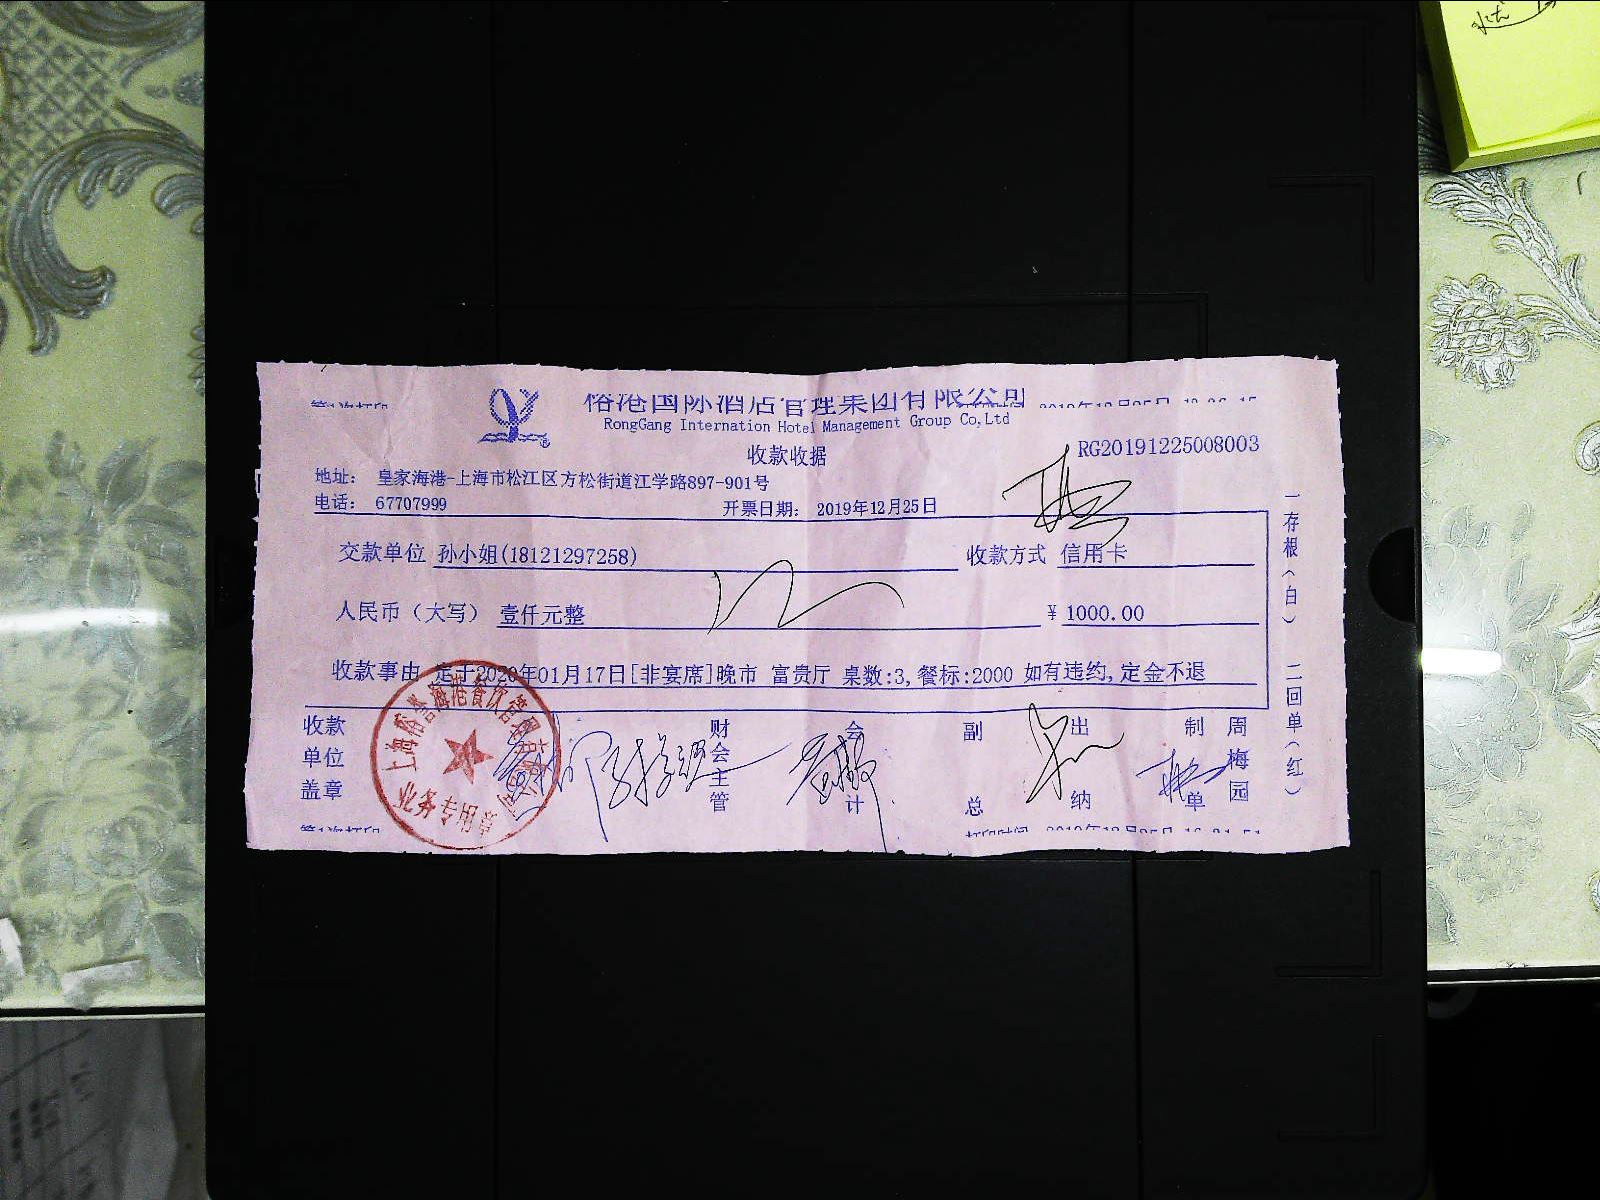 榕港国际酒店管理集团有限公司
RongGang Internation Hotel Management Group Co,Ltd
收款收据
RG20191225008003
地址： 皇家海港-上海市松江区方松街道江学路897-901号
电话： 67707999 开票日期： 2019年12月25日
交款单位 孙小姐(18121297258) 收款方式 信用卡
人民币（大写） 壹仟元整 ¥ 1000.00
收款事由 定于2020年01月17日[非宴席]晚市 富贵厅 桌数:3,餐标:2000 如有违约,定金不退
收款单位盖章 财会主管 会计 副总 出纳 制单 周梅园
一存根（白） 二回单（红）
业务专用章